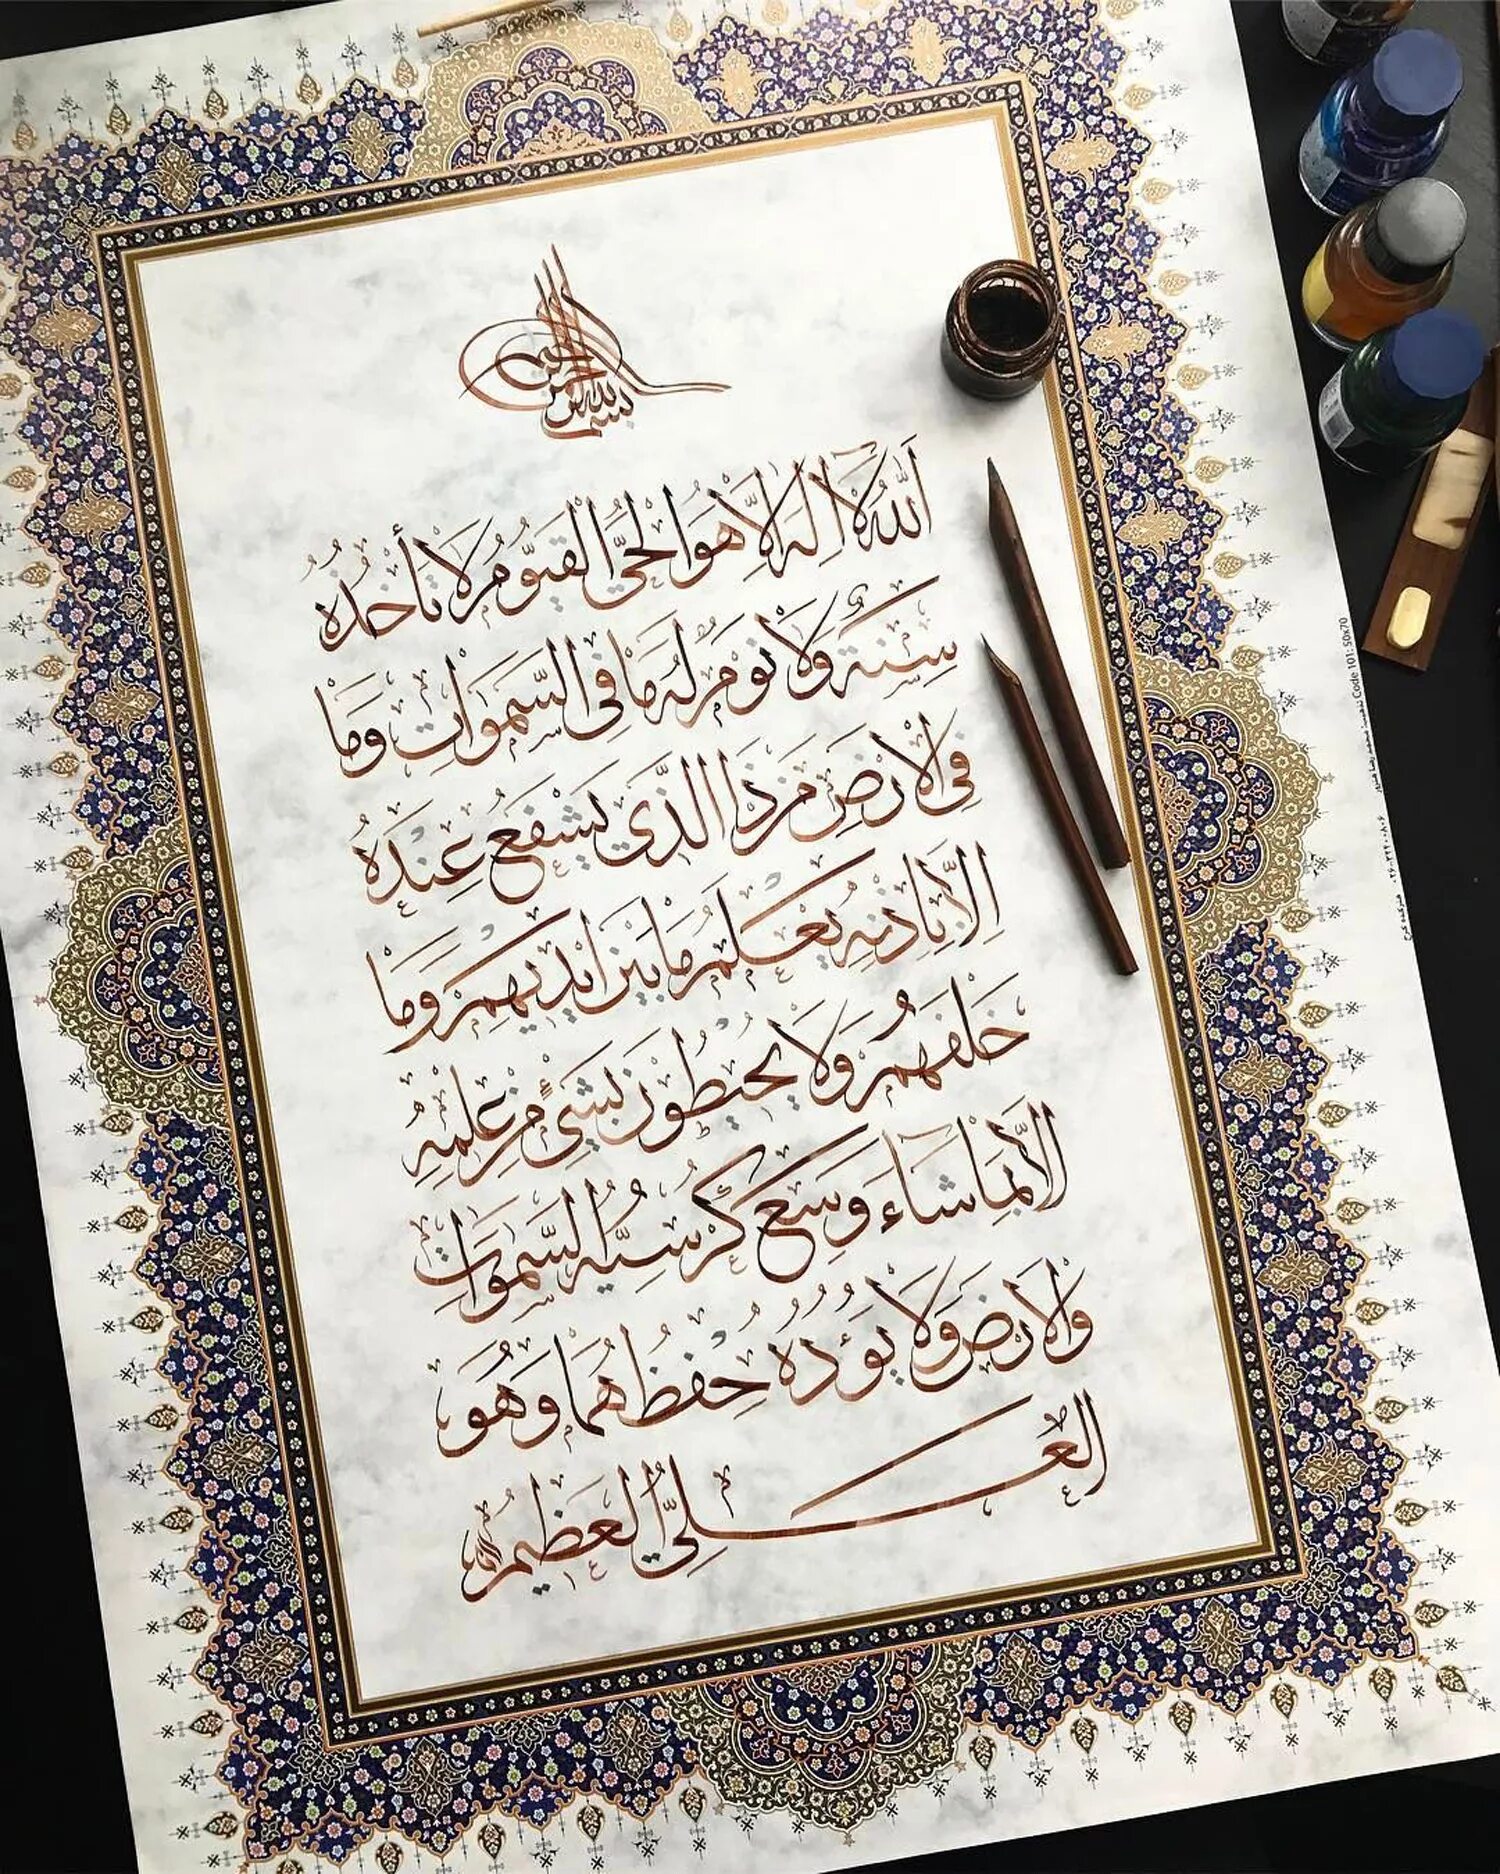 بسم الله الرحمن الرحیم
اَللّٰهُ لَا اِلٰهَ اِلَّا هُوَ الْحَیُّ الْقَیُّومُ لَا تَأْخُذُهُ
سِنَةٌ وَلَا نَوْمٌ لَهُ مَا فِی السَّمٰوَاتِ وَمَا
فِی الْاَرْضِ مَنْ ذَا الَّذِی یَشْفَعُ عِنْدَهُ
اِلَّا بِاِذْنِهِ یَعْلَمُ مَا بَیْنَ اَیْدِیهِمْ وَمَا
خَلْفَهُمْ وَلَا یُحِیطُونَ بِشَیْءٍ مِنْ عِلْمِهِ
اِلَّا بِمَا شَاءَ وَسِعَ كُرْسِیُّهُ السَّمٰوَاتِ
وَالْاَرْضَ وَلَا یَؤُدُهُ حِفْظُهُمَا وَهُوَ
الْعَلِیُّ الْعَظِیمُ
Code 101: 50x70